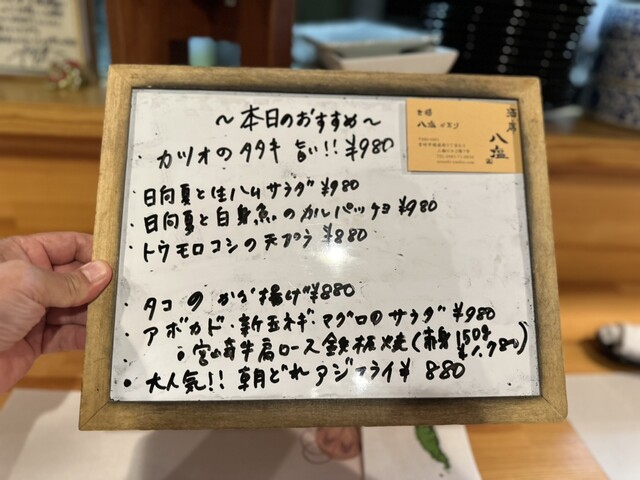 ～本日のおすすめ～
・カツオのタタキ 旨い!! ¥980
・日向夏と生ハムサラダ ¥980
・日向夏と白身魚のカルパッチョ ¥980
・トウモロコシの天プラ ¥880
・タコのから揚げ ¥880
・アボカド・新玉ネギ・マグロのサラダ ¥980
●宮崎牛肩ロース鉄板焼(赤身150g
¥1,780)
●大人気!! 朝どれアジフライ ¥880
酒岸
八塩